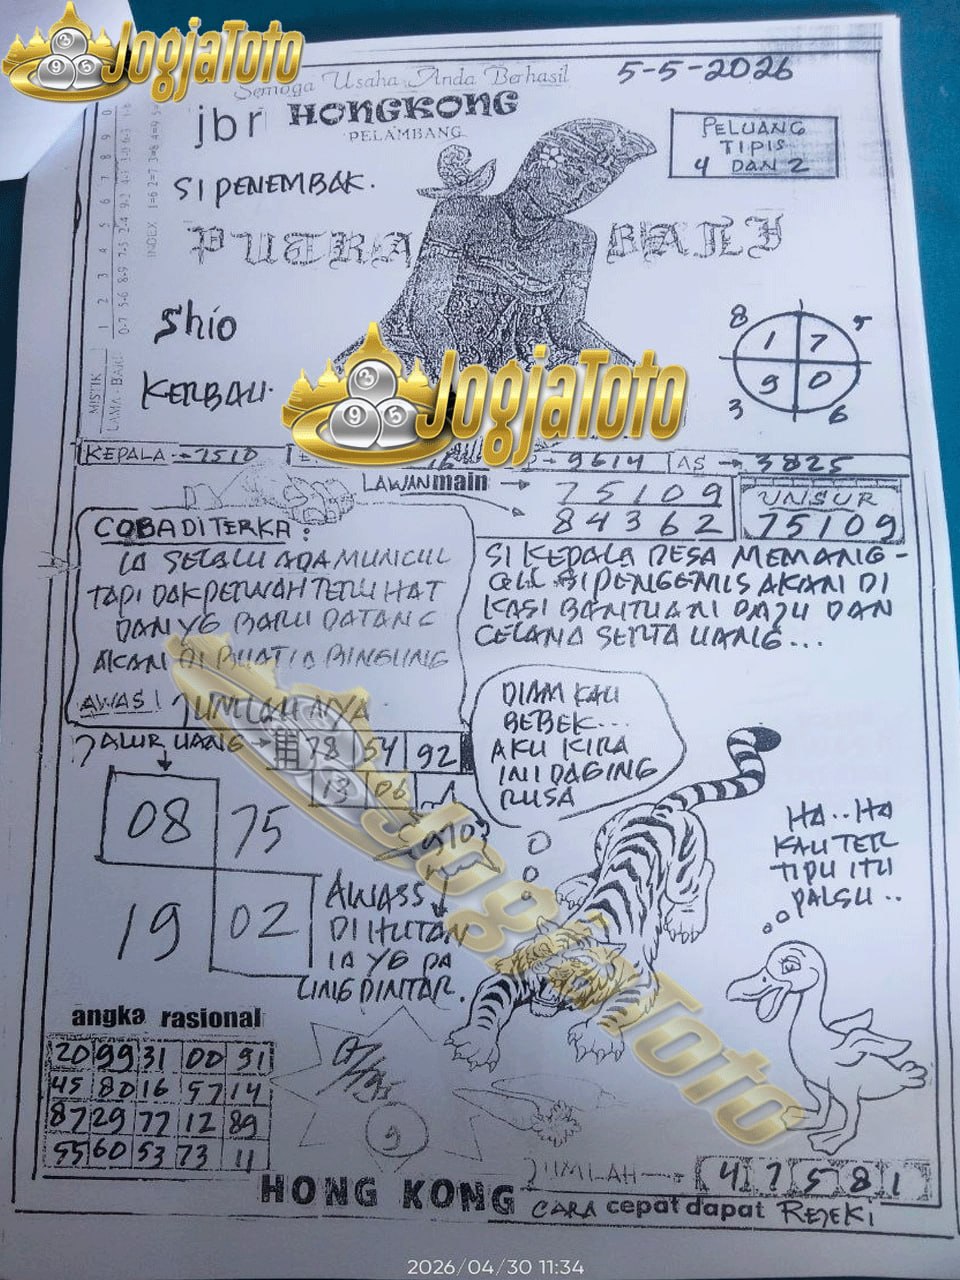 JogjaToto
Semoga Usaha Anda Berhasil
5-5-2026
jbr HONGKONG
PELAMBANG
PELUANG
TIPIS
4 DAN 2
SI PENEMBAK.
PUTRA BALI
Shio
KERBAU.
8 5
1 7
9 0
3 6
MISTIK
LAMA - BARU
INDEX
JogjaToto
KEPALA → 7510
→ 9614 AS → 3825
LAWAN main → 75109
84362
UNSUR
75109
COBA DITERKA:
IA SELALU ADA MUNCUL
TAPI DAK PERNAH TERLIHAT
DAN YG BARU DATANG
AKAN DI BUAT IA BINGUNG
AWAS! JUMLAH NYA
SI KEPALA DESA MEMANG-
GIL SI PENGEMIS AKAN DI
KASI BANTUAN BAJU DAN
CELANA SERTA UANG...
ALUR UANG → 78 54 92
13 06
08 75
19 02
DIAM KAU
BEBEK...
AKU KIRA
INI DAGING
RUSA
HA..HA
KAU TER
TIPU ITU
PALSU..
AWASS
DI HUTAN
IA YG PA
LING PINTAR.
JogjaToto
angka rasional
20 99 31 00 91
45 80 16 57 14
87 29 77 12 89
55 60 53 73 11
9
JUMLAH → 4 7 5 8 1
HONG KONG
CARA cepat dapat REJEKI
2026/04/30 11:34